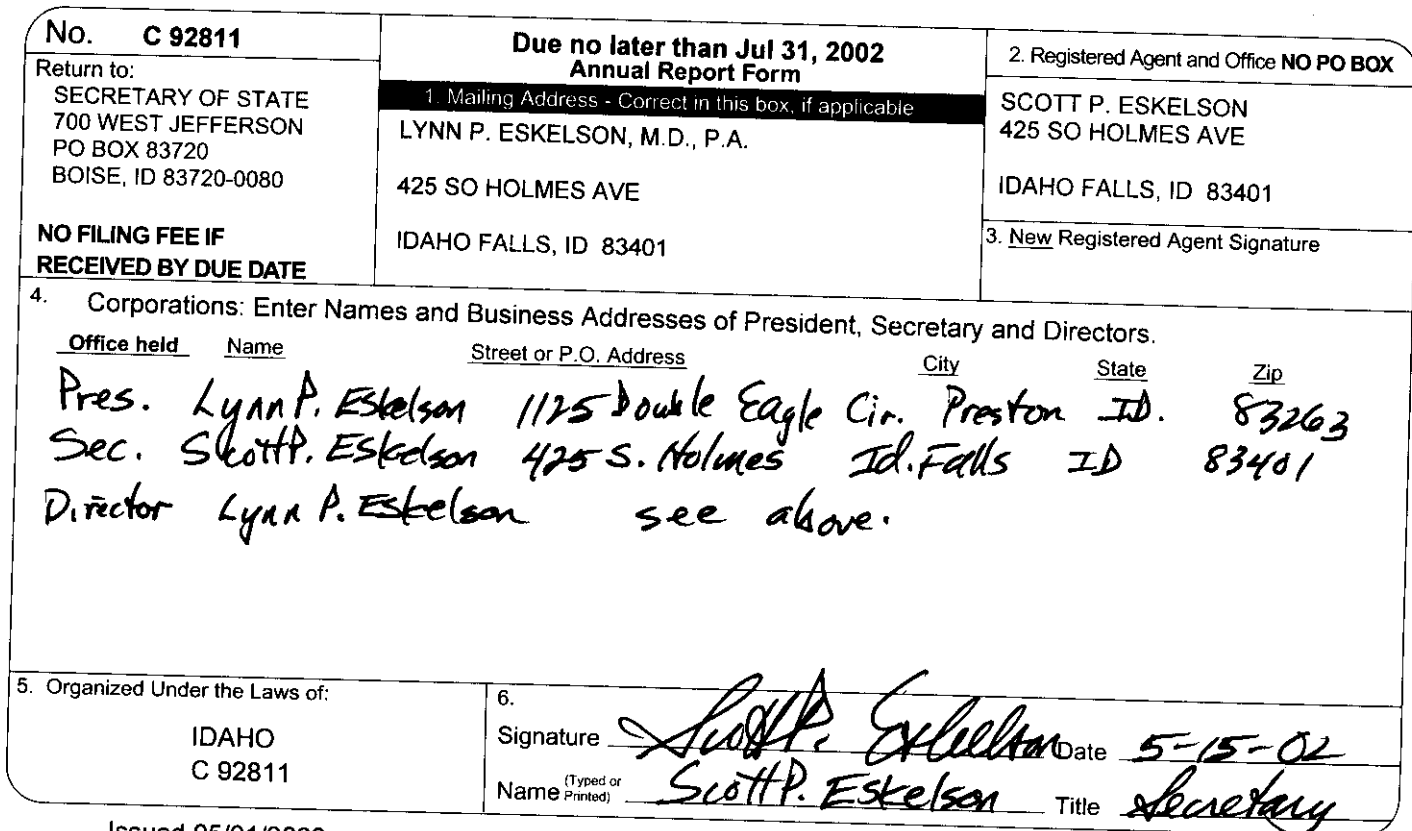 No. C 92811
Return to:
SECRETARY OF STATE
700 WEST JEFFERSON
PO BOX 83720
BOISE, ID 83720-0080
NO FILING FEE IF
RECEIVED BY DUE DATE
Due no later than Jul 31, 2002
Annual Report Form
1. Mailing Address - Correct in this box, if applicable
LYNN P. ESKELSON, M.D., P.A.
425 SO HOLMES AVE
IDAHO FALLS, ID 83401
2. Registered Agent and Office NO PO BOX
SCOTT P. ESKELSON
425 SO HOLMES AVE
IDAHO FALLS, ID 83401
3. New Registered Agent Signature
4. Corporations: Enter Names and Business Addresses of President, Secretary and Directors.
Office held Name Street or P.O. Address City State Zip
Pres. Lynn P. Eskelson 1125 Double Eagle Cir. Preston ID. 83263
Sec. Scott P. Eskelson 425 S. Holmes Id. Falls ID 83401
Director Lynn P. Eskelson see above.
5. Organized Under the Laws of:
IDAHO
C 92811
6.
Signature Scott P. Eskelson Date 5-15-02
Name (Typed or Printed) Scott P. Eskelson Title Secretary
Issued